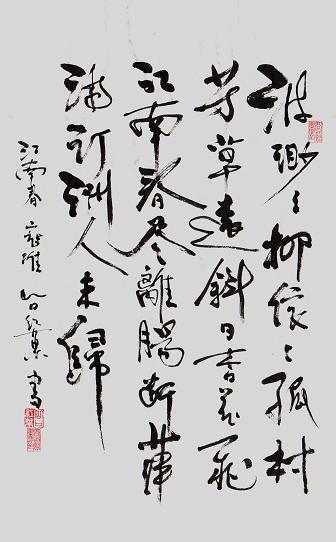 波渺々柳依々孤村
芳草遠斜日杏花飛
江南春尽離腸断蘋
滿汀洲人未歸
江南春 寇準 書